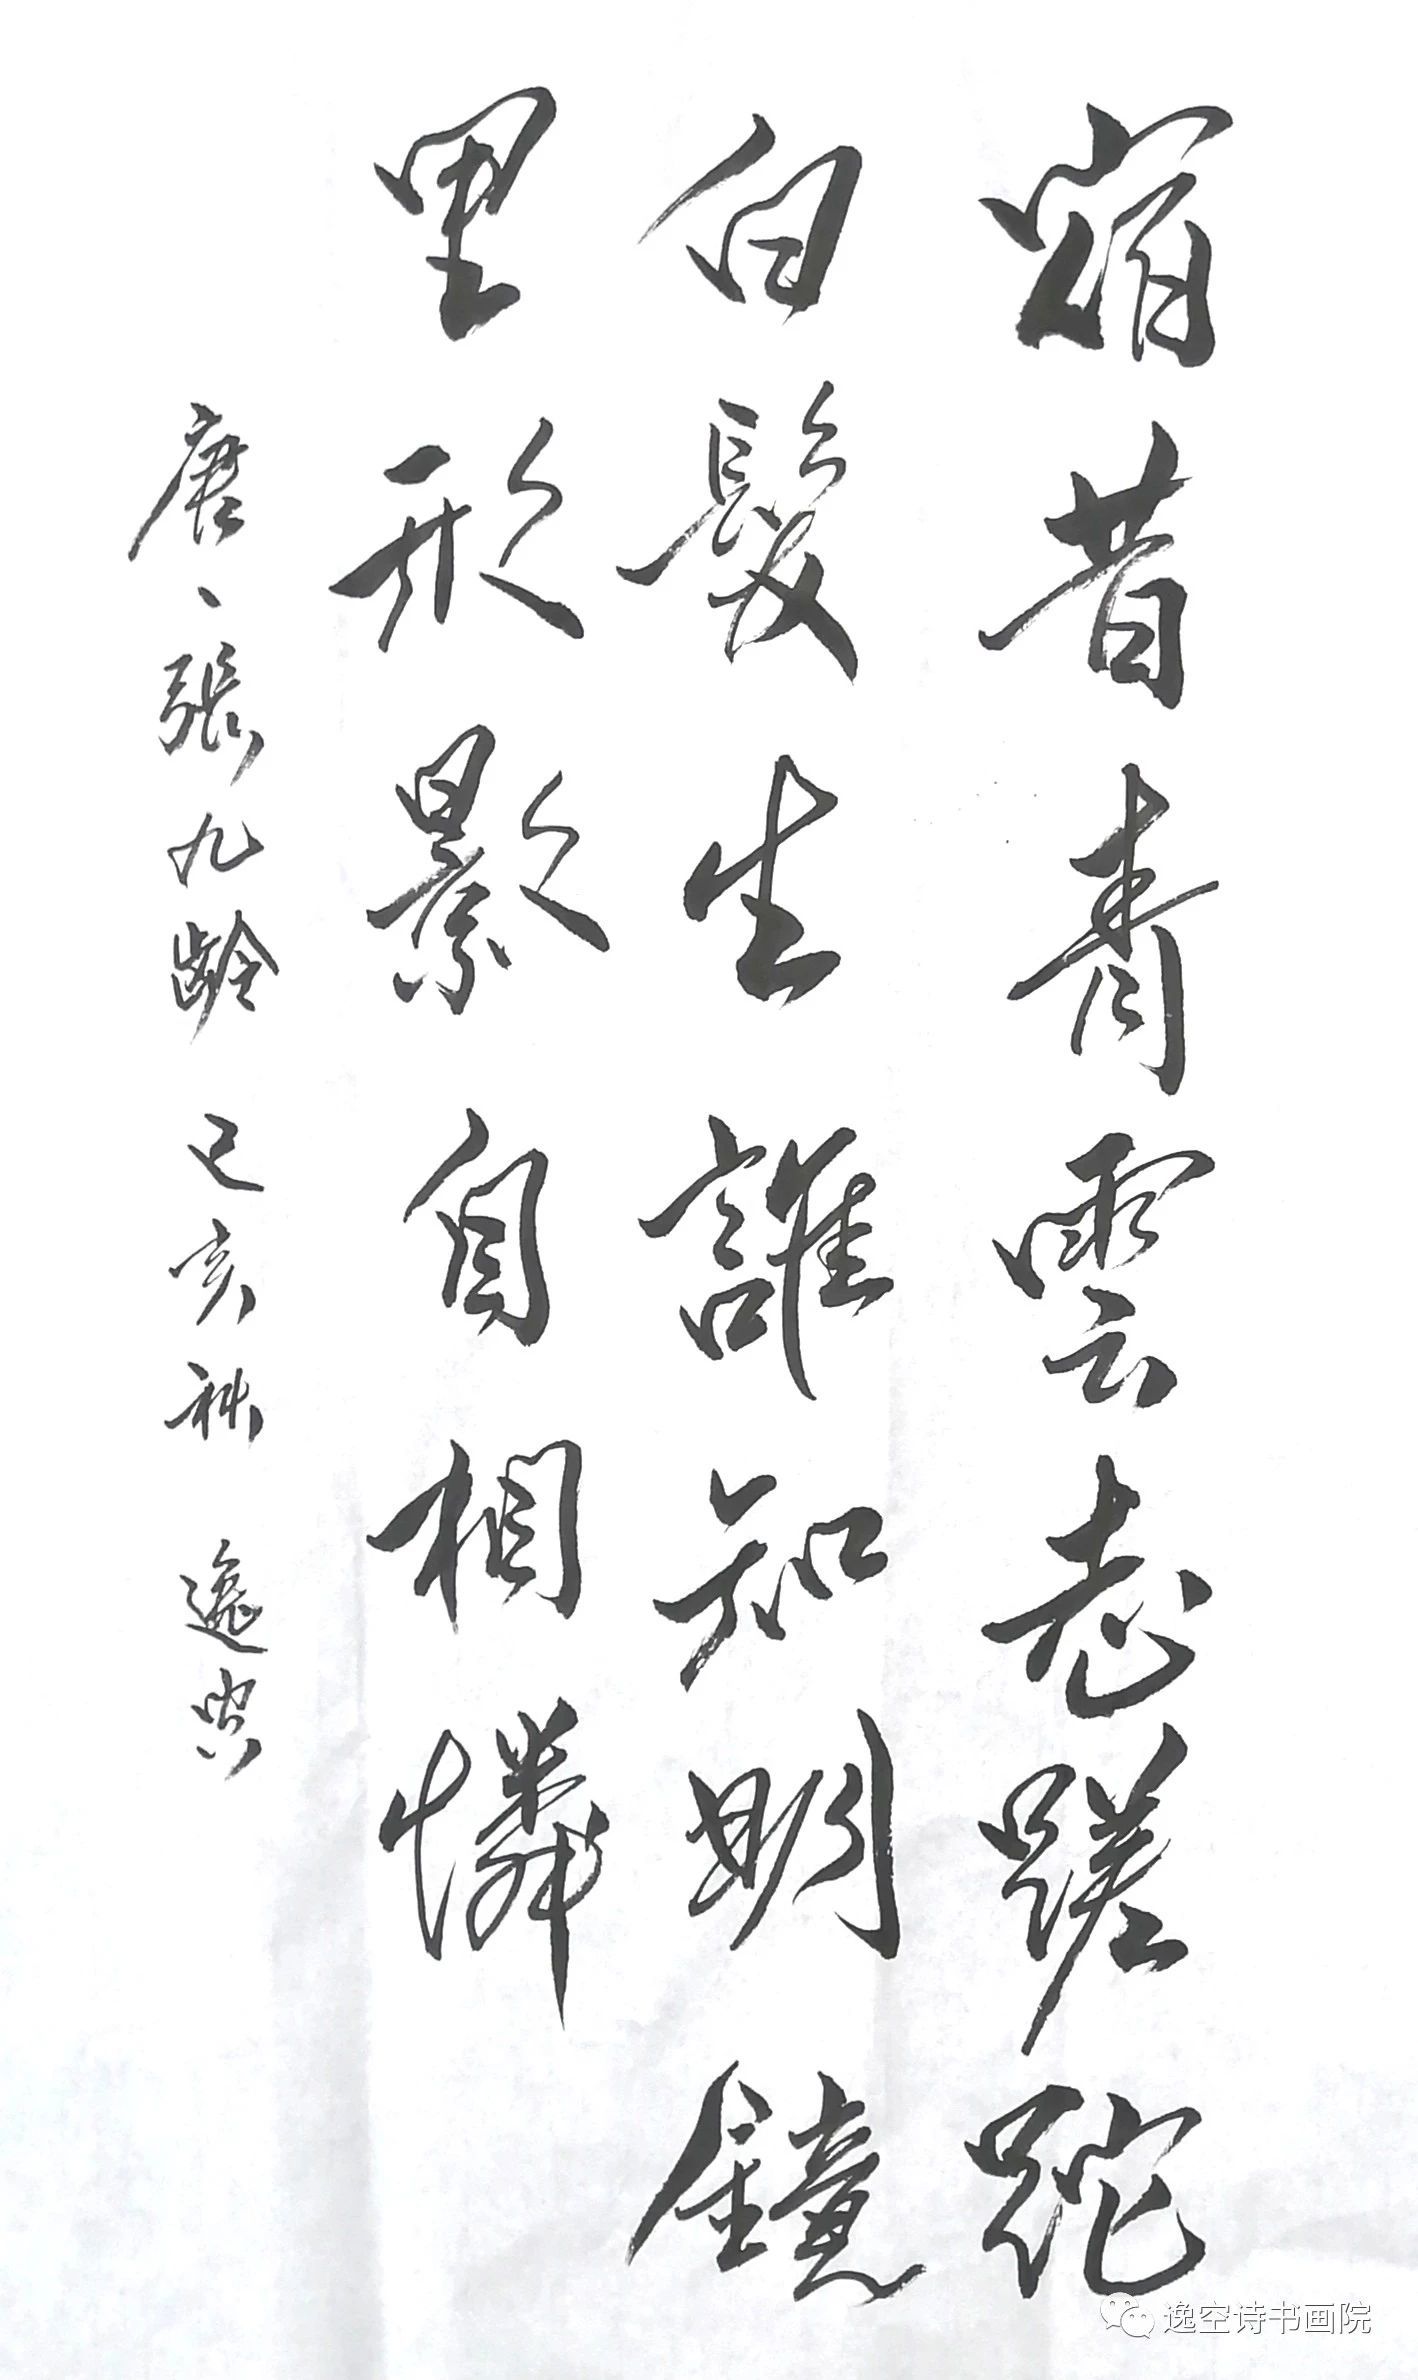 宿昔青雲志蹉跎
白髮生誰知明鏡
里形影自相憐
唐、張九齡 己亥秋 逸空
逸空诗书画院